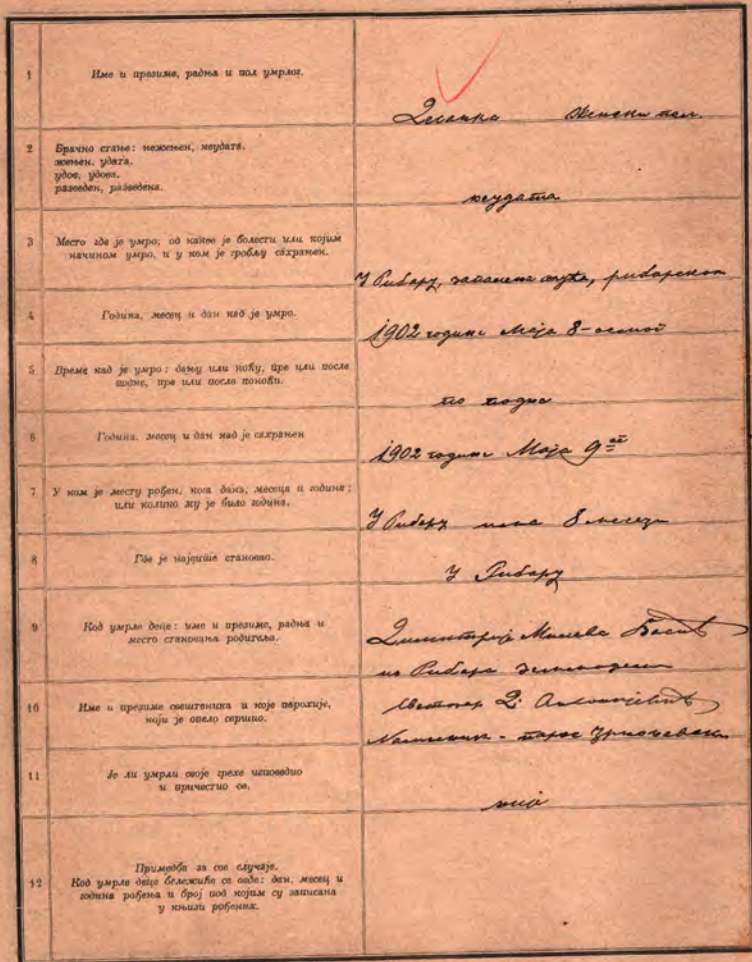 1
Име и презиме, радња и пол умрлог.
женски пол.
2
Брачно стање: нежењен, неудата.
жењен, удата.
удов, удова.
разведен, разведена.
неудата
3
Место где је умро, од какве је болести или којим
начином умро, и у ком је гробљу сахрањен.
У Рибару, рибарском
4
Година, месец и дан кад је умро.
1902 године Маја 8-осмог
5
Време кад је умро: дању или ноћу, пре или после
подне, пре или после поноћи.
по подне
6
Година, месец и дан кад је сахрањен
1902 године Маја 9ог
7
У ком је месту рођен, кога дана, месеца и године;
или колико му је било година.
У Рибару 8 месеци
8
Где је највише становао.
У Рибару
9
Код умрле деце: име и презиме, радња и
место становања родитеља.
Димитрије Басић
из Рибара
10
Име и презиме свештеника и које парохије,
који је опело свршио.
Д.
11
Је ли умрли своје грехе исповедио
и причестио се.
није
12
Примедба за све случаје.
Код умрле деце бележиће се овде: дан, месец и
година рођења и број под којим су записана
у књизи рођених.